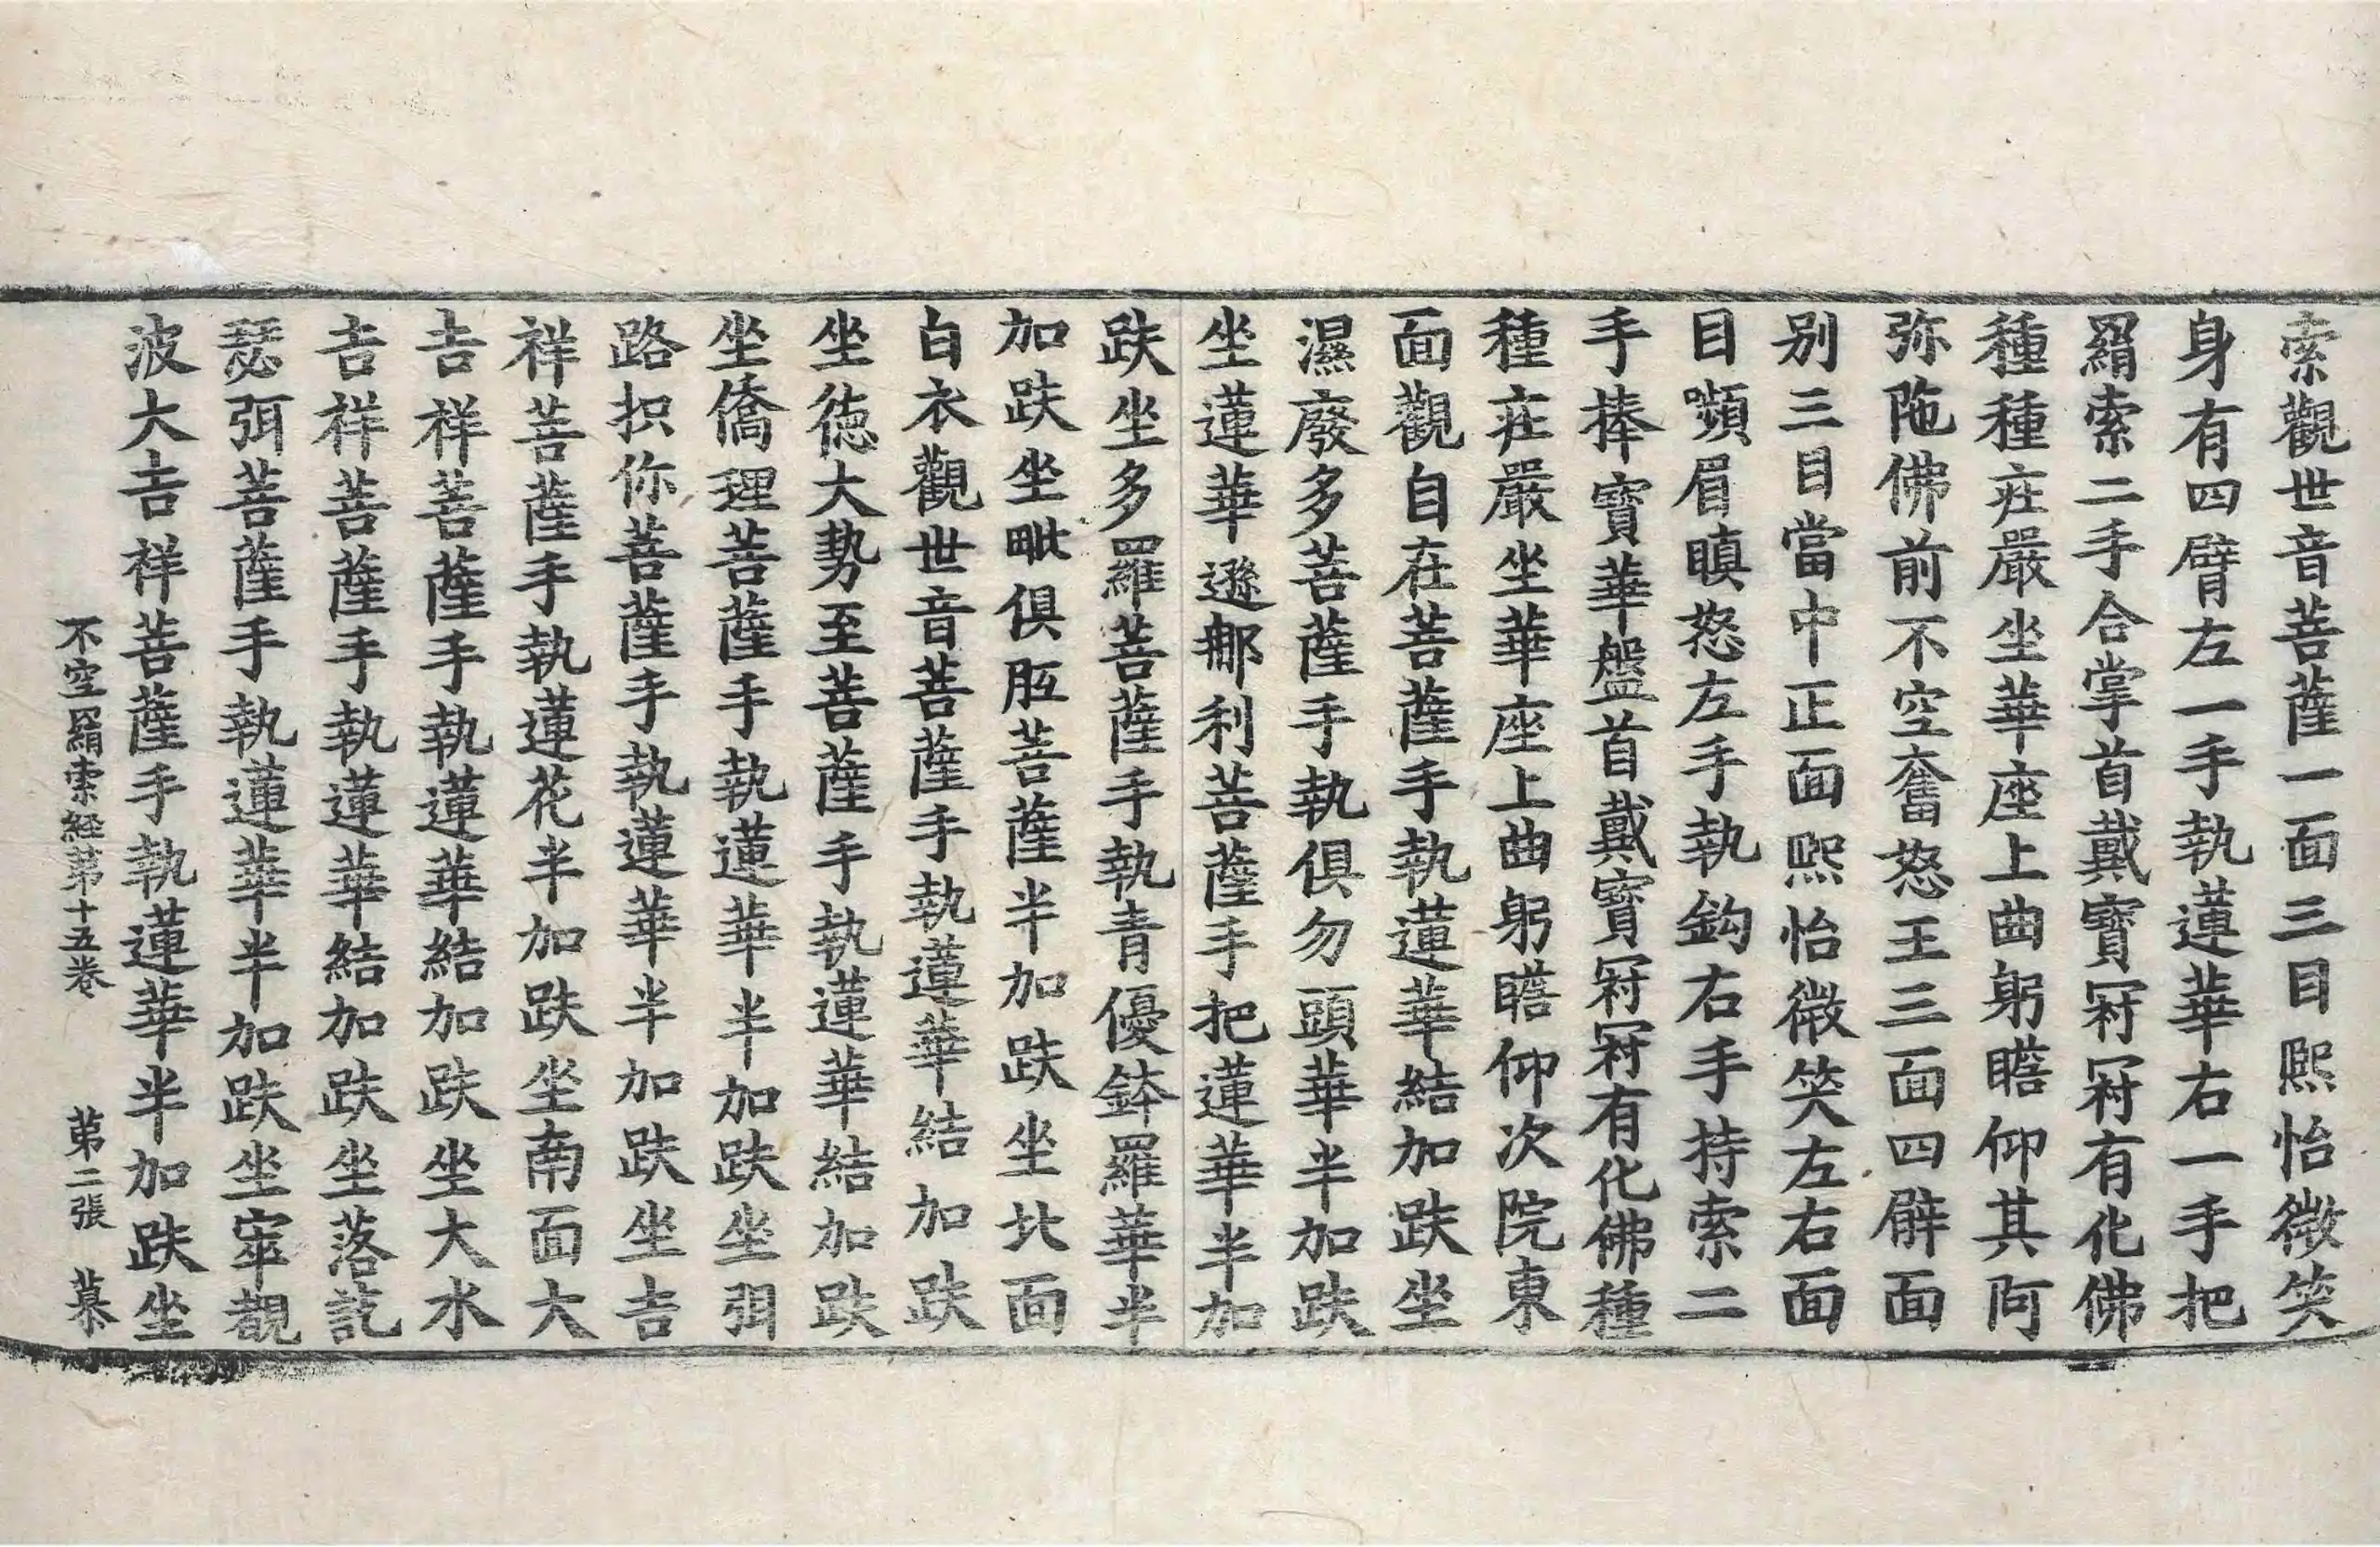 索觀世音菩薩一面三目熈怡微笑
身有四臂左一手執蓮華右一手把
羂索二手合掌首戴寶冠冠有化佛
種種莊嚴坐華座上曲躬瞻仰其阿
弥陁佛前不空奮怒王三面四臂面
别三目當中正面熈怡微笑左右面
目嚬眉瞋怒左手執鈎右手持索二
手捧寶華盤首戴寶冠冠有化佛種
種莊嚴坐華座上曲躬瞻仰次院東
面觀自在菩薩手執蓮華結加趺坐
濕廢多菩薩手執俱勿頭華半加趺
坐蓮華遜那利菩薩手把蓮華半加
趺坐多羅菩薩手執青優鉢羅華半
加趺坐毗俱胝菩薩半加趺坐北面
白衣觀世音菩薩手執蓮華結加趺
坐徳大勢至菩薩手執蓮華結加趺
坐僑理菩薩手執蓮華半加趺坐弭
路抧你菩薩手執蓮華半加趺坐吉
祥菩薩手執蓮花半加趺坐南面大
吉祥菩薩手執蓮華結加趺坐大水
吉祥菩薩手執蓮華結加趺坐落訖
瑟弭菩薩手執蓮華半加趺坐窣覩
波大吉祥菩薩手執蓮華半加趺坐
不空羂索經第十五卷 第二張 慕